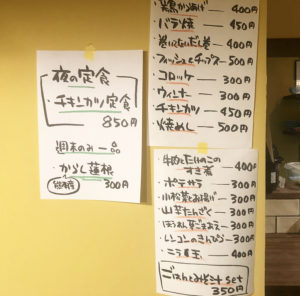 夜の定食
・チキンカツ定食
850円
週末のみ一品
・からし蓮根
300円
・バラ焼 — 450円
・巻いてないだし巻 — 400円
・フィッシュ&チップス — 500円
・コロッケ — 300円
・ウィンナ — 300円
・チキンカツ — 450円
・焼めし — 500円
・牛肉とたけのこの
すき煮 — 400円
・ポテサラ — 300円
・小松菜とお揚げ — 300円
・山芋たんざく — 300円
・ほうれん草ごまあえ — 300円
・レンコンのきんぴら — 300円
・ニラ玉 — 400円
ごはんとみそ汁set
350円